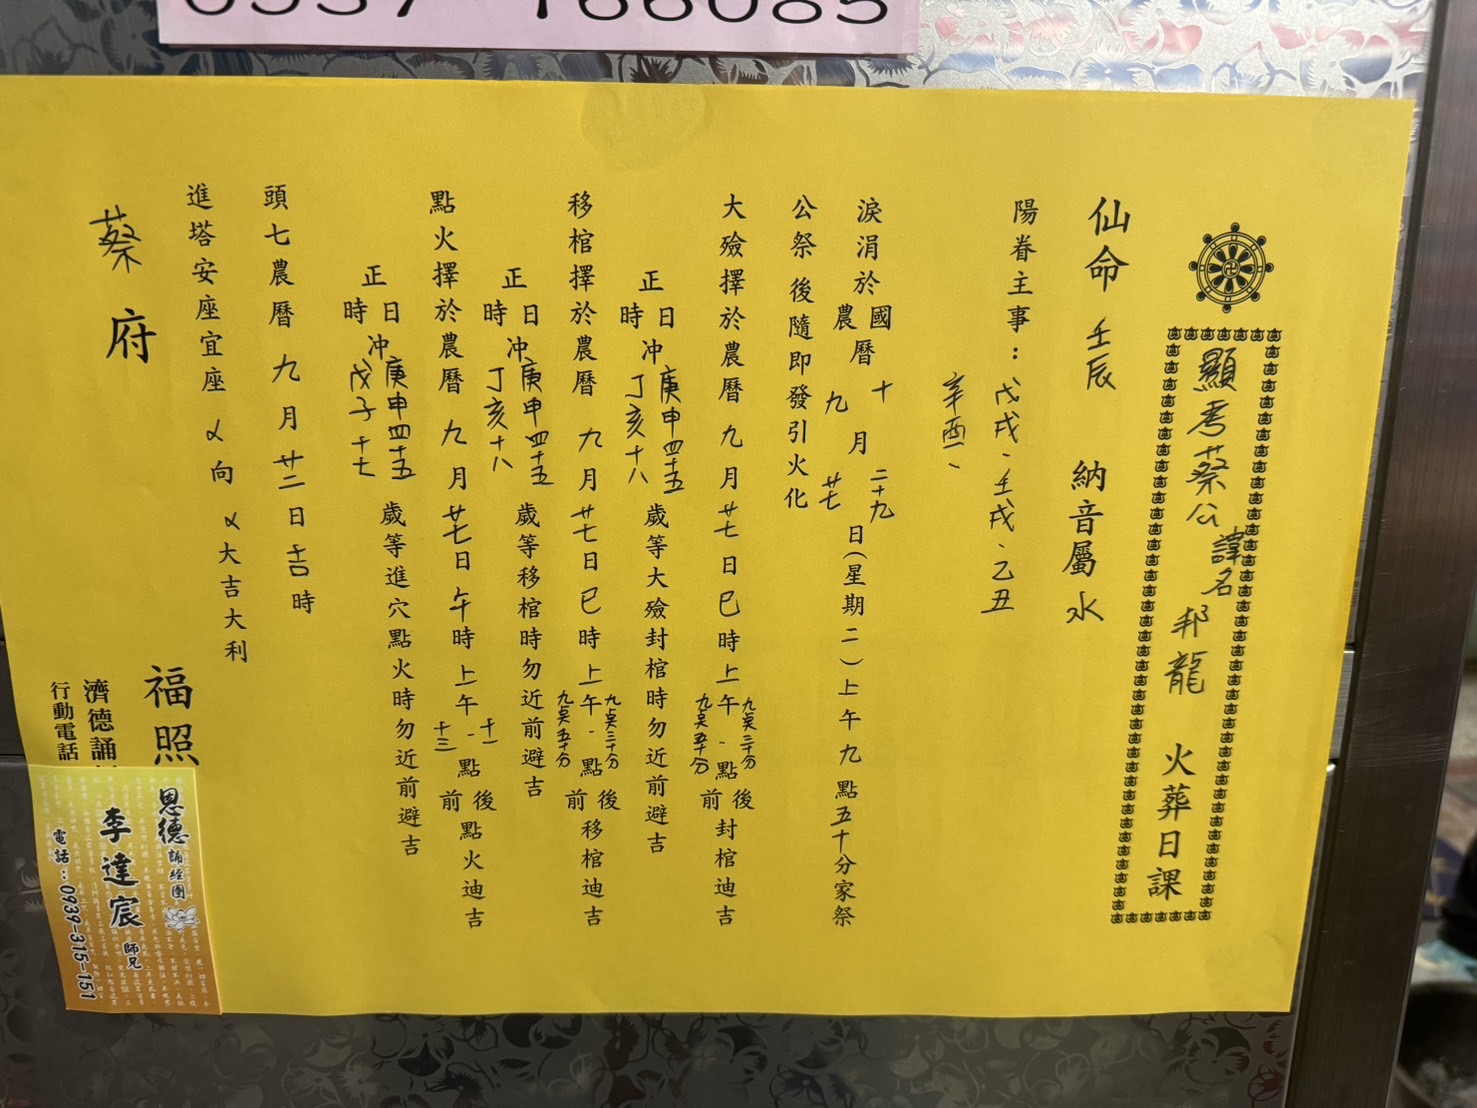 顯考蔡公諱名邦龍 火葬日課
仙命 壬辰 納音屬 水
陽眷主事：戊戌、壬戌、乙丑
辛酉、
淚涓於國曆十月二十九日(星期二)上午九點五十分家祭
農曆九月廿七
公祭後隨即發引火化
大殮擇於農曆九月廿七日巳時上午九點三十分後封棺迪吉
九點五十分前
正日冲庚申四十五歲等大殮封棺時勿近前避吉
時冲丁亥十八
移棺擇於農曆九月廿七日巳時上午九點三十分後移棺迪吉
九點五十分前
正日冲庚申四十五歲等移棺時勿近前避吉
時冲丁亥十八
點火擇於農曆九月廿七日午時上午十一點後點火迪吉
十三點前
正日冲庚申四十五歲等進穴點火時勿近前避吉
時冲戊子十七
頭七農曆九月廿二日 時
進塔安座宜座 向 大吉大利
蔡府
福照
濟德誦
行動電話
恩德誦經團
李達宸師兄
電話：0939-315-151